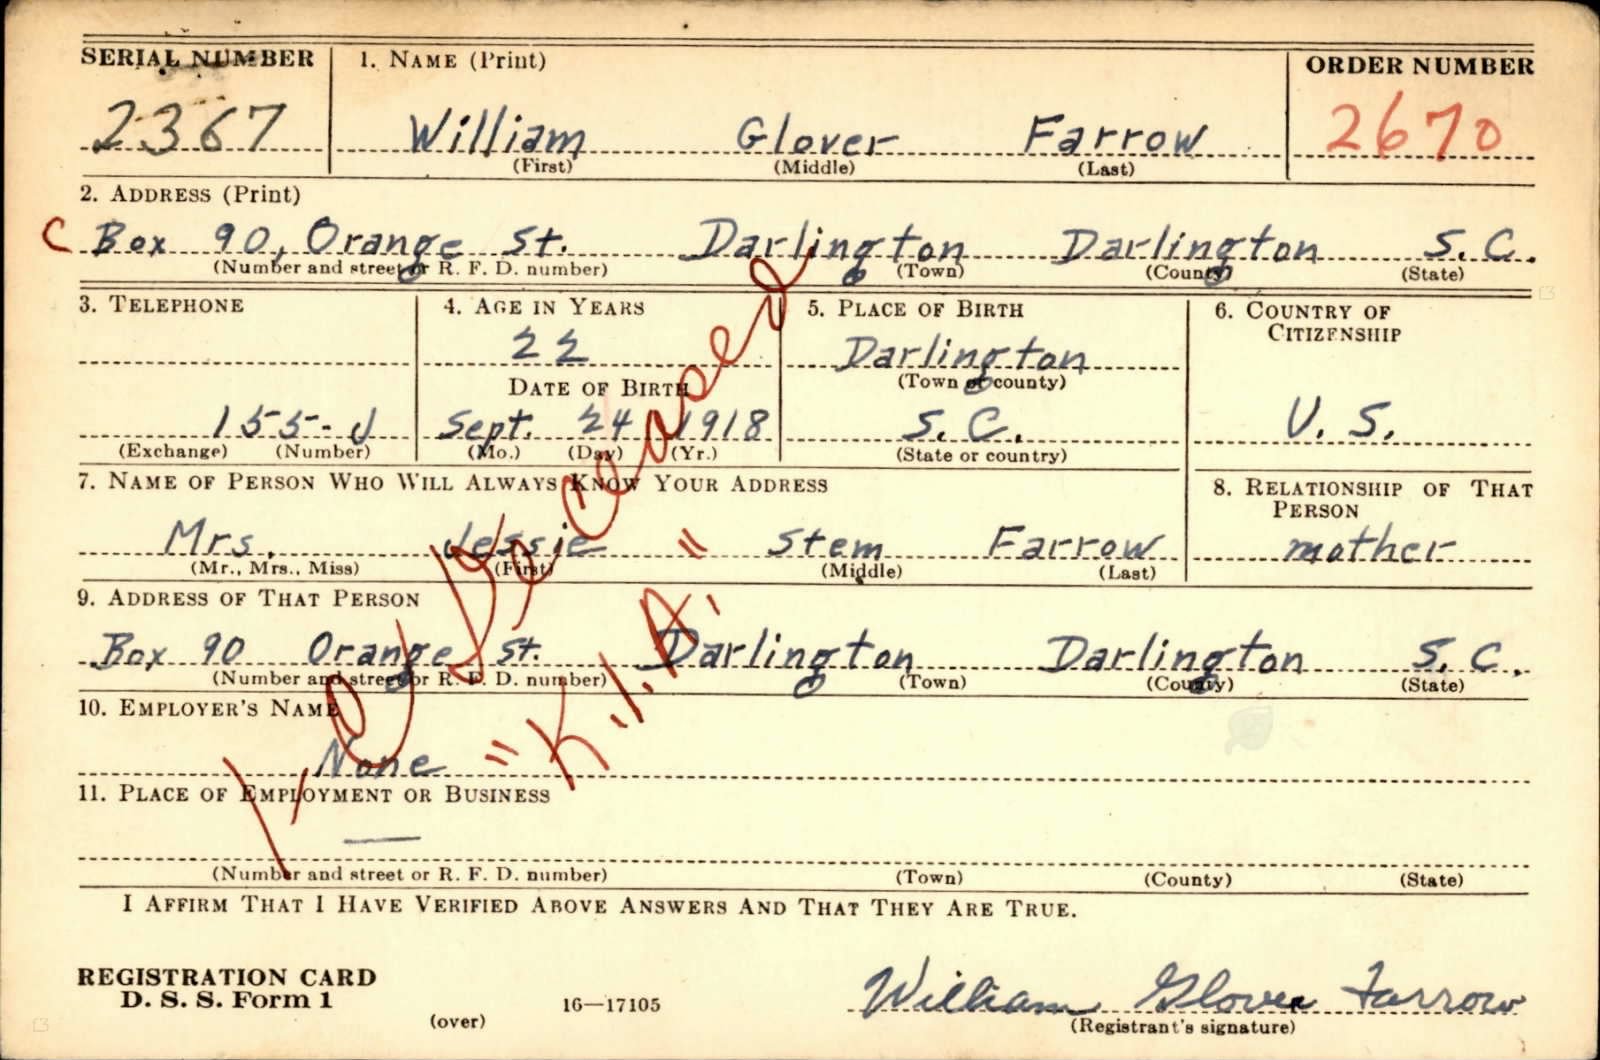 SERIAL NUMBER 1. NAME (Print) ORDER NUMBER
2367 William Glover Farrow 2670
(First) (Middle) (Last)
2. ADDRESS (Print)
C Box 90, Orange St. Darlington Darlington S.C.
(Number and street or R. F. D. number) (Town) (County) (State)
3. TELEPHONE 4. AGE IN YEARS 5. PLACE OF BIRTH 6. COUNTRY OF
CITIZENSHIP
22 Darlington
(Town or county)
DATE OF BIRTH
155-J Sept. 24 1918 S.C. U.S.
(Exchange) (Number) (Mo.) (Day) (Yr.) (State or country)
7. NAME OF PERSON WHO WILL ALWAYS KNOW YOUR ADDRESS 8. RELATIONSHIP OF THAT
PERSON
Mrs. Jessie Stem Farrow mother
(Mr., Mrs., Miss) (First) (Middle) (Last)
9. ADDRESS OF THAT PERSON
Box 90 Orange St. Darlington Darlington S.C.
(Number and street or R. F. D. number) (Town) (County) (State)
10. EMPLOYER'S NAME
None
11. PLACE OF EMPLOYMENT OR BUSINESS
—
(Number and street or R. F. D. number) (Town) (County) (State)
1-C Deceased
"K.I.A."
I AFFIRM THAT I HAVE VERIFIED ABOVE ANSWERS AND THAT THEY ARE TRUE.
REGISTRATION CARD
D. S. S. Form 1 16—17105 William Glover Farrow
(over) (Registrant's signature)